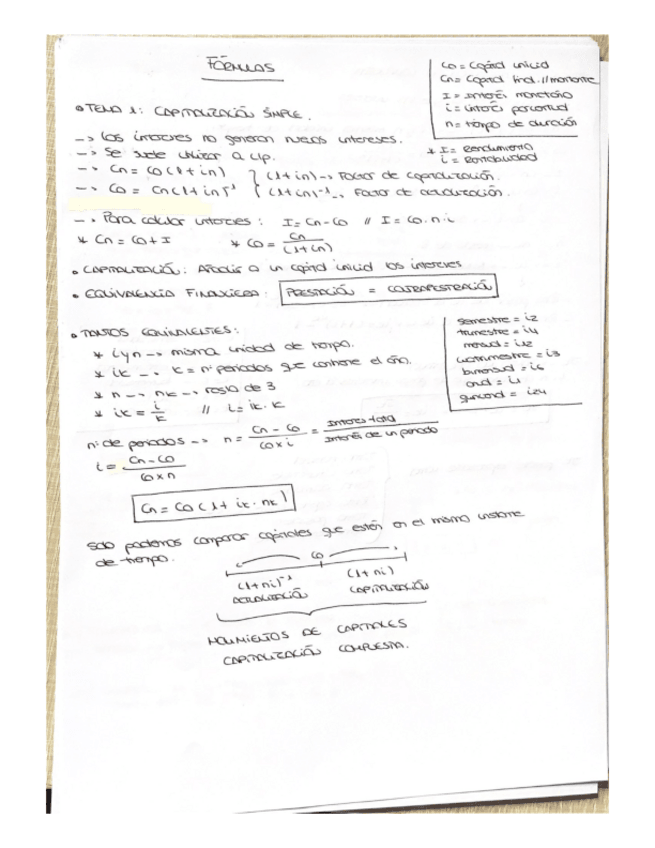 FÓRMULAS
C0 = Capital inicial
Cn = Capital final // montante
I = interés monetario
i = interés porcentual
n = tiempo de duración
* I = Rendimiento
i = Rentabilidad
• TEMA 1: CAPITALIZACIÓN SIMPLE.
-> Los intereses no generan nuevos intereses.
-> Se suele utilizar a c/p.
-> Cn = C0 (1 + in) } (1 + in) -> Factor de capitalización.
-> C0 = Cn (1 + in)⁻¹ } (1 + in)⁻¹ -> Factor de actualización.
-> Para calcular intereses: I = Cn - C0 // I = C0 . n . i
* Cn = C0 + I * C0 = Cn / (1 + in)
• CAPITALIZACIÓN: Añadir a un capital inicial los intereses
• EQUIVALENCIA FINANCIERA: PRESTACIÓN = CONTRAPRESTACIÓN
• TANTOS EQUIVALENTES:
* i y n -> misma unidad de tiempo.
* ik -> k = nº periodos que contiene el año.
* n -> nk -> regla de 3
* ik = i / k // i = ik . k
semestre = i2
trimestre = i4
mensual = i12
cuatrimestre = i3
bimensual = i6
anual = i1
quincenal = i24
nº de periodos -> n = Cn - C0 / C0 x i = Interés total / Interés de un periodo
i = Cn - C0 / C0 x n
Cn = C0 (1 + ik . nk)
Solo podemos comparar capitales que estén en el mismo instante
de tiempo.
C0
(1 + ni)⁻¹ (1 + ni)
ACTUALIZACIÓN CAPITALIZACIÓN
MOVIMIENTOS DE CAPITALES
CAPITALIZACIÓN COMPUESTA.